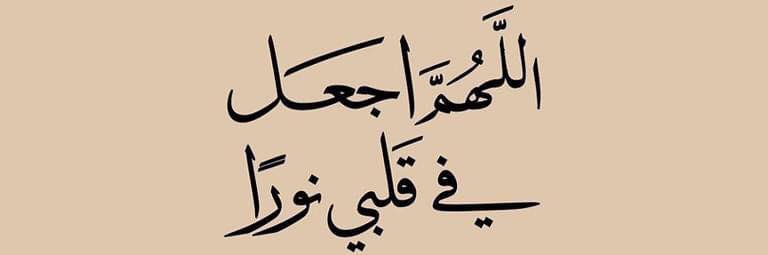 اللَّهُمَّ اجعل
في قَلبي نورًا